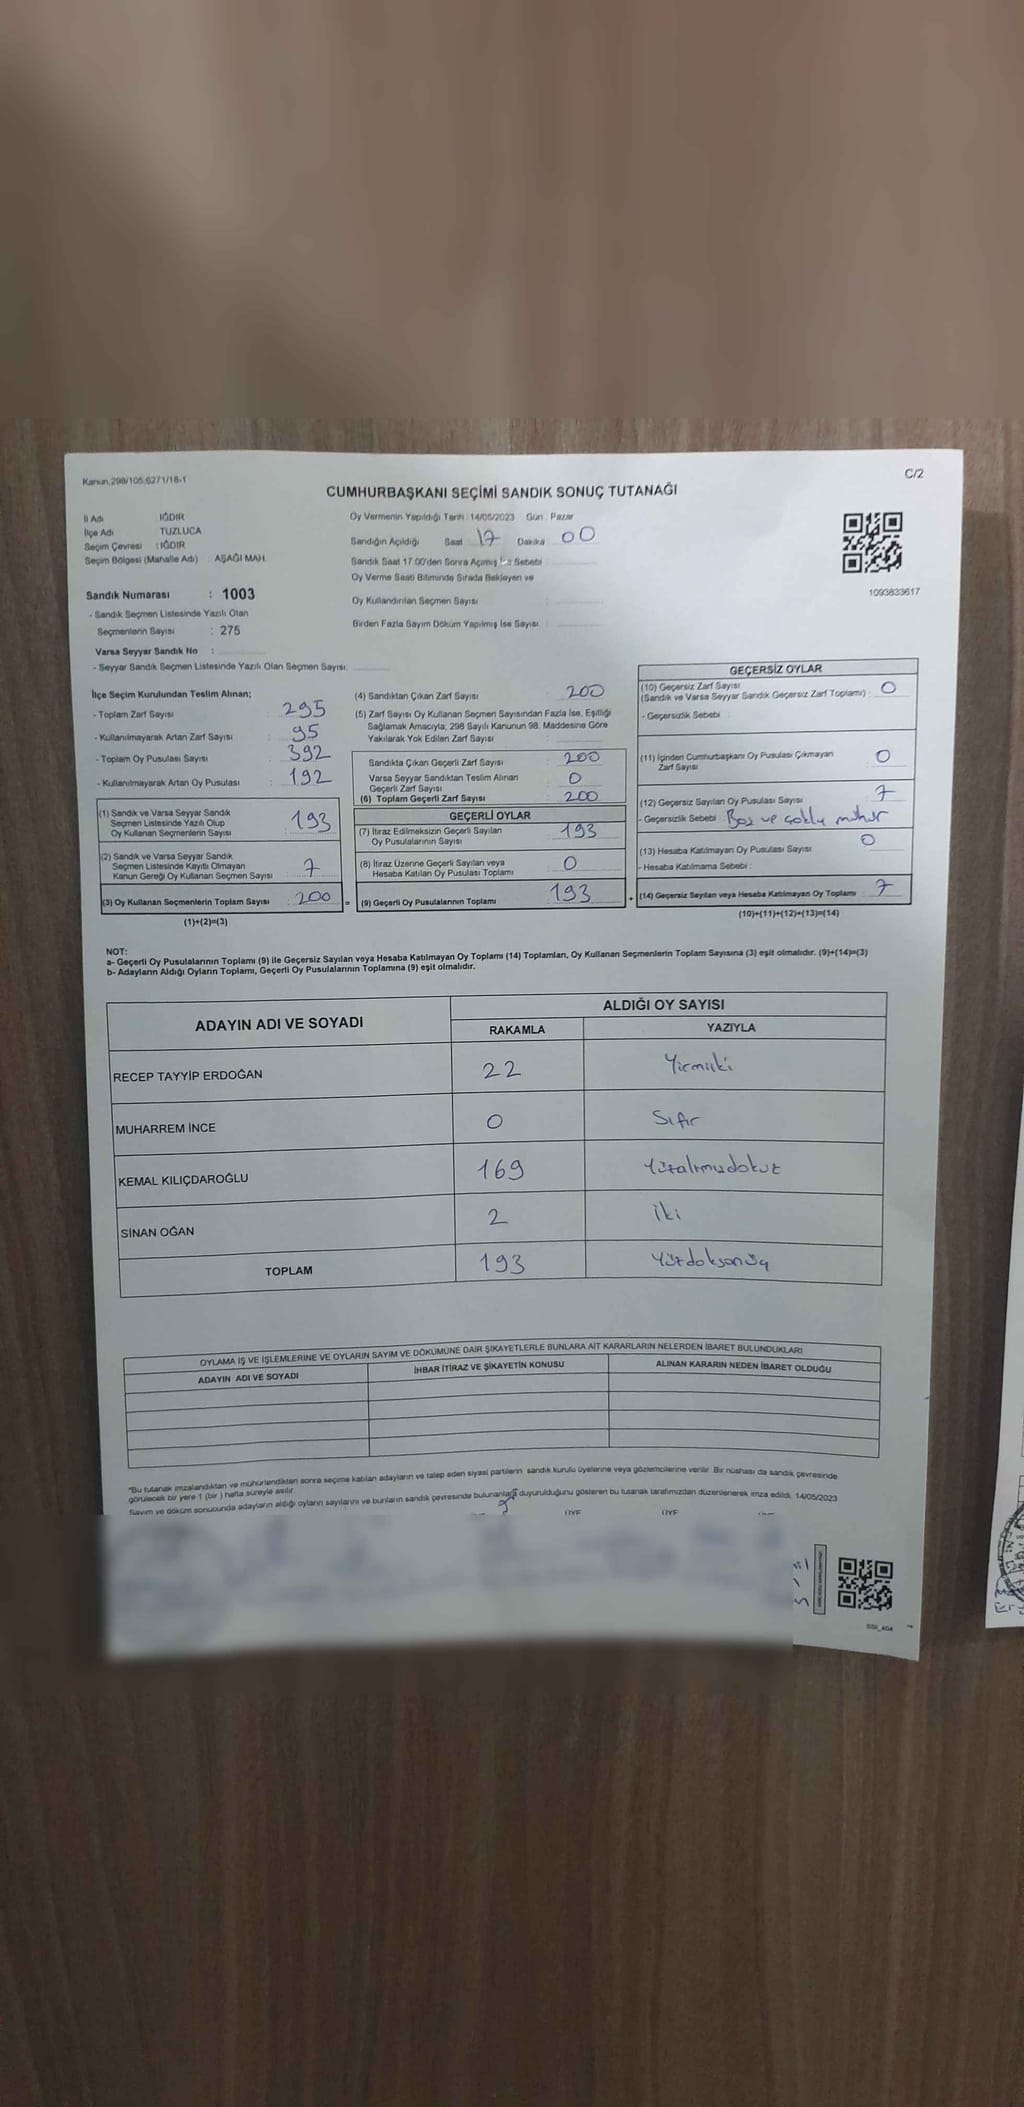 Kanun.298/105.6271/18-1
C/2
CUMHURBAŞKANI SEÇİMİ SANDIK SONUÇ TUTANAĞI
İl Adı IĞDIR
İlçe Adı TUZLUCA
Seçim Çevresi : IĞDIR
Seçim Bölgesi (Mahalle Adı) : AŞAĞI MAH.
Sandık Numarası : 1003
- Sandık Seçmen Listesinde Yazılı Olan
Seçmenlerin Sayısı : 275
Varsa Seyyar Sandık No :
- Seyyar Sandık Seçmen Listesinde Yazılı Olan Seçmen Sayısı:
Oy Vermenin Yapıldığı Tarih : 14/05/2023 Gün : Pazar
Sandığın Açıldığı Saat 17 Dakika 00
Sandık Saat 17.00'den Sonra Açılmış Sebebi
Oy Verme Saati Bitiminde Sırada Bekleyen ve
Oy Kullandırılan Seçmen Sayısı :
Birden Fazla Sayım Döküm Yapılmış İse Sayısı :
1093833617
İlçe Seçim Kurulundan Teslim Alınan;
- Toplam Zarf Sayısı : 295
- Kullanılmayarak Artan Zarf Sayısı : 95
- Toplam Oy Pusulası Sayısı : 392
- Kullanılmayarak Artan Oy Pusulası : 192
(1) Sandık ve Varsa Seyyar Sandık
Seçmen Listesinde Yazılı Olup
Oy Kullanan Seçmenlerin Sayısı : 193
(2) Sandık ve Varsa Seyyar Sandık
Seçmen Listesinde Kayıtlı Olmayan
Kanun Gereği Oy Kullanan Seçmen Sayısı : 7
(3) Oy Kullanan Seçmenlerin Toplam Sayısı : 200 =
(1)+(2)=(3)
(4) Sandıktan Çıkan Zarf Sayısı : 200
(5) Zarf Sayısı Oy Kullanan Seçmen Sayısından Fazla İse, Eşitliği
Sağlamak Amacıyla; 298 Sayılı Kanunun 98. Maddesine Göre
Yakılarak Yok Edilen Zarf Sayısı :
Sandıkta Çıkan Geçerli Zarf Sayısı : 200
Varsa Seyyar Sandıktan Teslim Alınan
Geçerli Zarf Sayısı : 0
(6) Toplam Geçerli Zarf Sayısı : 200
GEÇERLİ OYLAR
(7) İtiraz Edilmeksizin Geçerli Sayılan
Oy Pusulalarının Sayısı : 193
(8) İtiraz Üzerine Geçerli Sayılan veya
Hesaba Katılan Oy Pusulası Toplamı : 0
(9) Geçerli Oy Pusulalarının Toplamı : 193 +
GEÇERSİZ OYLAR
(10) Geçersiz Zarf Sayısı
(Sandık ve Varsa Seyyar Sandık Geçersiz Zarf Toplamı) : 0
- Geçersizlik Sebebi :
(11) İçinden Cumhurbaşkanı Oy Pusulası Çıkmayan
Zarf Sayısı : 0
(12) Geçersiz Sayılan Oy Pusulası Sayısı : 7
- Geçersizlik Sebebi : Boş ve çoklu mühür
(13) Hesaba Katılmayan Oy Pusulası Sayısı : 0
- Hesaba Katılmama Sebebi :
(14) Geçersiz Sayılan veya Hesaba Katılmayan Oy Toplamı : 7
(10)+(11)+(12)+(13)=(14)
NOT:
a- Geçerli Oy Pusulalarının Toplamı (9) ile Geçersiz Sayılan veya Hesaba Katılmayan Oy Toplamı (14) Toplamları, Oy Kullanan Seçmenlerin Toplam Sayısına (3) eşit olmalıdır. (9)+(14)=(3)
b- Adayların Aldığı Oyların Toplamı, Geçerli Oy Pusulalarının Toplamına (9) eşit olmalıdır.
ADAYIN ADI VE SOYADI ALDIĞI OY SAYISI
RAKAMLA YAZIYLA
RECEP TAYYİP ERDOĞAN 22 Yirmiiki
MUHARREM İNCE 0 Sıfır
KEMAL KILIÇDAROĞLU 169 Yüzaltmışdokuz
SİNAN OĞAN 2 İki
TOPLAM 193 Yüzdoksanüç
OYLAMA İŞ VE İŞLEMLERİNE VE OYLARIN SAYIM VE DÖKÜMÜNE DAİR ŞİKAYETLERLE BUNLARA AİT KARARLARIN NELERDEN İBARET BULUNDUKLARI
ADAYIN ADI VE SOYADI İHBAR İTİRAZ VE ŞİKAYETİN KONUSU ALINAN KARARIN NEDEN İBARET OLDUĞU
"Bu tutanak imzalandıktan ve mühürlendikten sonra seçime katılan adayların ve talep eden siyasi partilerin sandık kurulu üyelerine veya gözlemcilerine verilir. Bir nüshası da sandık çevresinde
görülecek bir yere 1 (bir ) hafta süreyle asılır.
Sayım ve döküm sonucunda adayların aldığı oyların sayılarını ve bunların sandık çevresinde bulunanlara duyurulduğunu gösteren bu tutanak tarafımızdan düzenlenerek imza edildi. 14/05/2023
ÜYE ÜYE